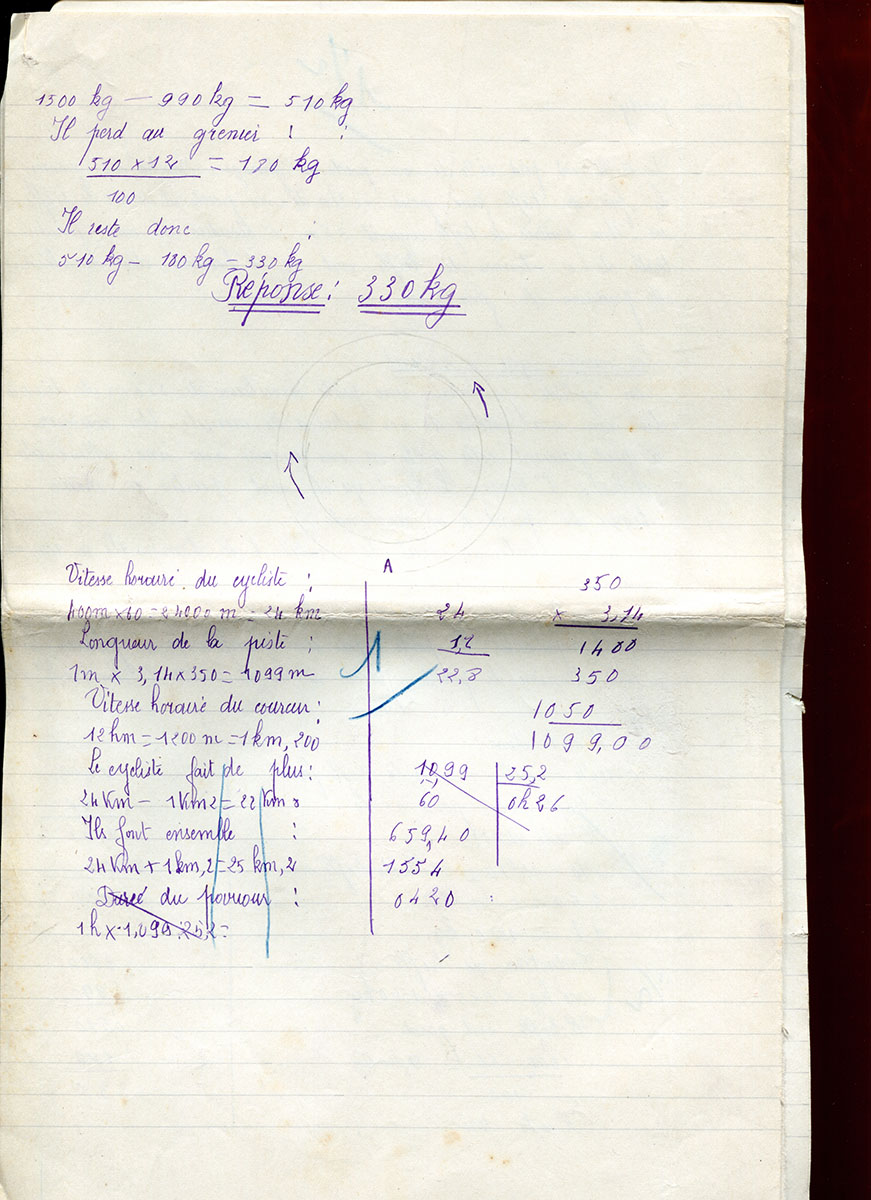 1500 kg — 990 kg = 510 kg
Il perd au grenier : :
510 × 12 = 180 kg
100
Il reste donc :
510 kg - 180 kg = 330 kg
Réponse : 330 kg
A
Vitesse horaire du cycliste :
400m × 60 = 24000 m = 24 km
Longueur de la piste :
1m × 3,14 × 350 = 1099 m
Vitesse horaire du coureur :
12hm = 1200 m = 1 km, 200
Le cycliste fait de plus :
24 Km - 1 Km 2 = 22 Km 8
Ils font ensemble :
24 Km + 1 km, 2 = 25 km, 2
Durée du :
1h × 1,099 : 25,2 =
24
1,2
22,8
350
× 3,14
1400
350
1050
1099,00
1099 25,2
60 0h26
659,40
1554
0420